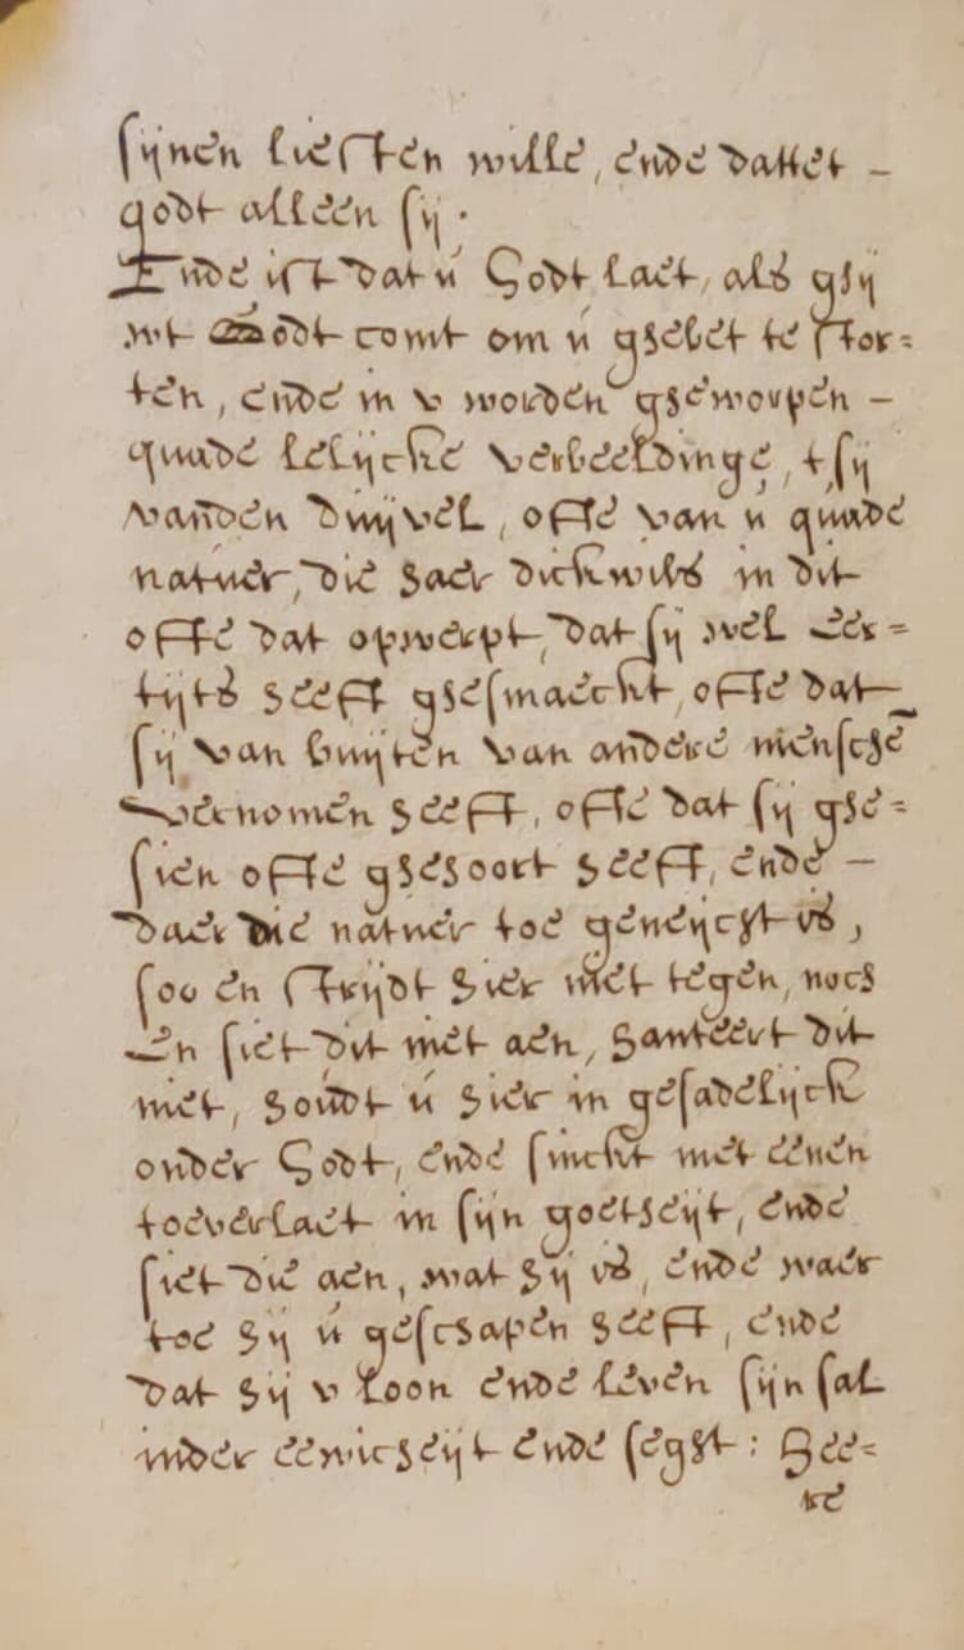 sijnen liesten wille, ende dattet –
godt alleen sij.
Ende ist dat ú Godt laet, als ghij
wt Godt comt om ú ghebet te stor=
ten, ende in v worden gheworpen –
quade lelijcke verbeeldinge, t,sij
vanden duijvel, ofte van ú quade
natuer, die haer dickwils in dit
ofte dat opwerpt, dat sij wel eer=
tijts heeft ghesmaeckt, ofte dat
sij van buijten van andere menschē
vernomen heeft, ofte dat sij ghe=
sien ofte ghehoort heeft, ende –
daer die natuer toe geneijcht is,
soo en strijdt hier niet tegen, noch
en siet dit niet aen, hanteert dit
niet, houdt ú hier in gesadelijck
onder Godt, ende sinckt met eenen
toeverlaet in sijn goetheijt, ende
siet die aen, wat hij is, ende waer
toe hij ú geschapen heeft, ende
dat hij v loon ende leven sijn sal
inder eewicheijt ende seght: Hee=
re